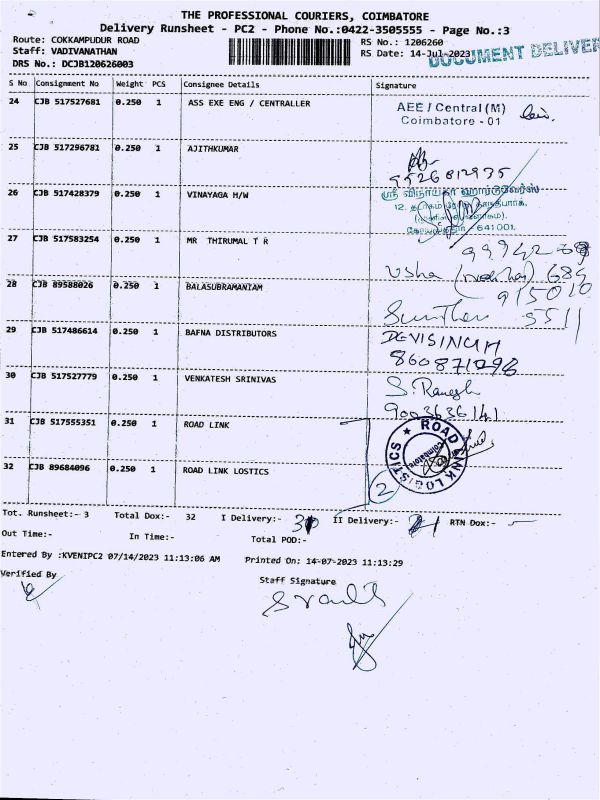 THE PROFESSIONAL COURIERS, COIMBATORE
Delivery Runsheet - PC2 - Phone No.:0422-3505555 - Page No.:3
Route: COKKAMPUDUR ROAD
RS No.: 1206260
Staff: VADIVANATHAN
RS Date: 14-Jul-2023
DOCUMENT DELIVER
DRS No.: DCJB120626003
S No Consignment No Weight PCS Consignee Details Signature
24 CJB 517527681 0.250 1 ASS EXE ENG / CENTRALLER
AEE / Central (M)
Coimbatore - 01
25 CJB 517296781 0.250 1 AJITHKUMAR
9926812935
26 CJB 517428379 0.250 1 VINAYAGA H/W
ஸ்ரீ விநாயகா ஹார்டுவேர்ஸ்
641001.
27 CJB 517583254 0.250 1 MR THIRUMAL T R
Usha
28 CJB 89588026 0.250 1 BALASUBRAMANIAM
29 CJB 517486614 0.250 1 BAFNA DISTRIBUTORS
DEVISINGH
30 CJB 517527779 0.250 1 VENKATESH SRINIVAS
9003636141
31 CJB 517555351 0.250 1 ROAD LINK
ROAD LINK LOGISTICS
Coimbatore
32 CJB 89684096 0.250 1 ROAD LINK LOSTICS
2
Tot. Runsheet:- 3 Total Dox:- 32 I Delivery:- II Delivery:- RTN Dox:- -
Out Time:- In Time:- Total POD:-
Entered By :KVENIPC2 07/14/2023 11:13:06 AM Printed On: 14-07-2023 11:13:29
Verified By
Staff Signature